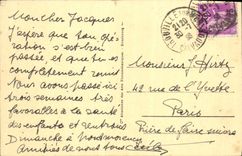 Mon cher Jacques
J'espère que ton opé-
ration s'est bien
passée et que tu es
complètement remis
Nous avons passé ici
trois semaines très
favorables à la santé
des enfants et rentrons
Dimanche à Montmorency
Amitiés de nous tous
Monsieur J. Hirtz
42 rue de l'Yvette
Paris
Prière de faire suivre